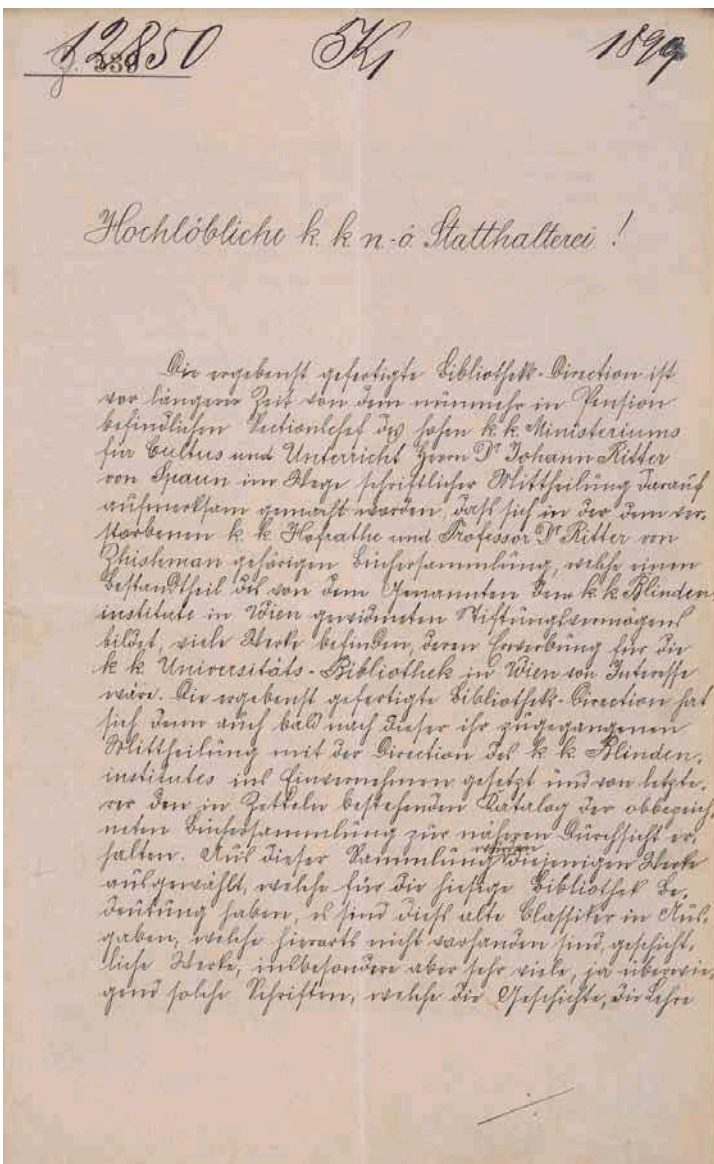 12850 K1 1899
Z. 330
Hochlöbliche k. k. n.-ö. Statthalterei!
Die ergebenst gefertigte Bibliothek-Direction ist
vor längerer Zeit von dem nunmehr in Pension
befindlichen Sectionschef des hohen k. k. Ministeriums
für Cultus und Unterricht Herrn Dr Johann Ritter
von Spaun im Wege schriftlicher Mittheilung darauf
aufmerksam gemacht worden, daß sich in der dem ver-
storbenen k. k. Hofrathe und Professor Dr Ritter von
Zhishman gehörigen Büchersammlung, welche einen
Bestandtheil des von dem Genannten dem k. k. Blinden-
institute in Wien gewidmeten Stiftungsvermögens
bildet, viele Werke befinden, deren Erwerbung für die
k. k. Universitäts-Bibliothek in Wien von Interesse
wäre. Die ergebenst gefertigte Bibliothek-Direction hat
sich denn auch bald nach dieser ihr zugegangenen
Mittheilung mit der Direction des k. k. Blinden-
institutes ins Einvernehmen gesetzt und von letzte-
rer den in Zetteln bestehenden Katalog der obbezeich-
neten Büchersammlung zur näheren Durchsicht er-
halten. Aus dieser Sammlung wurden diejenigen Werke
ausgewählt, welche für die hiesige Bibliothek Be-
deutung haben, es sind dieß alte Classiker in Aus-
gaben, welche hierorts nicht vorhanden sind, geschicht-
liche Werke, insbesondere aber sehr viele, ja überwie-
gend solche Schriften, welche die Geschichte, die Lehre